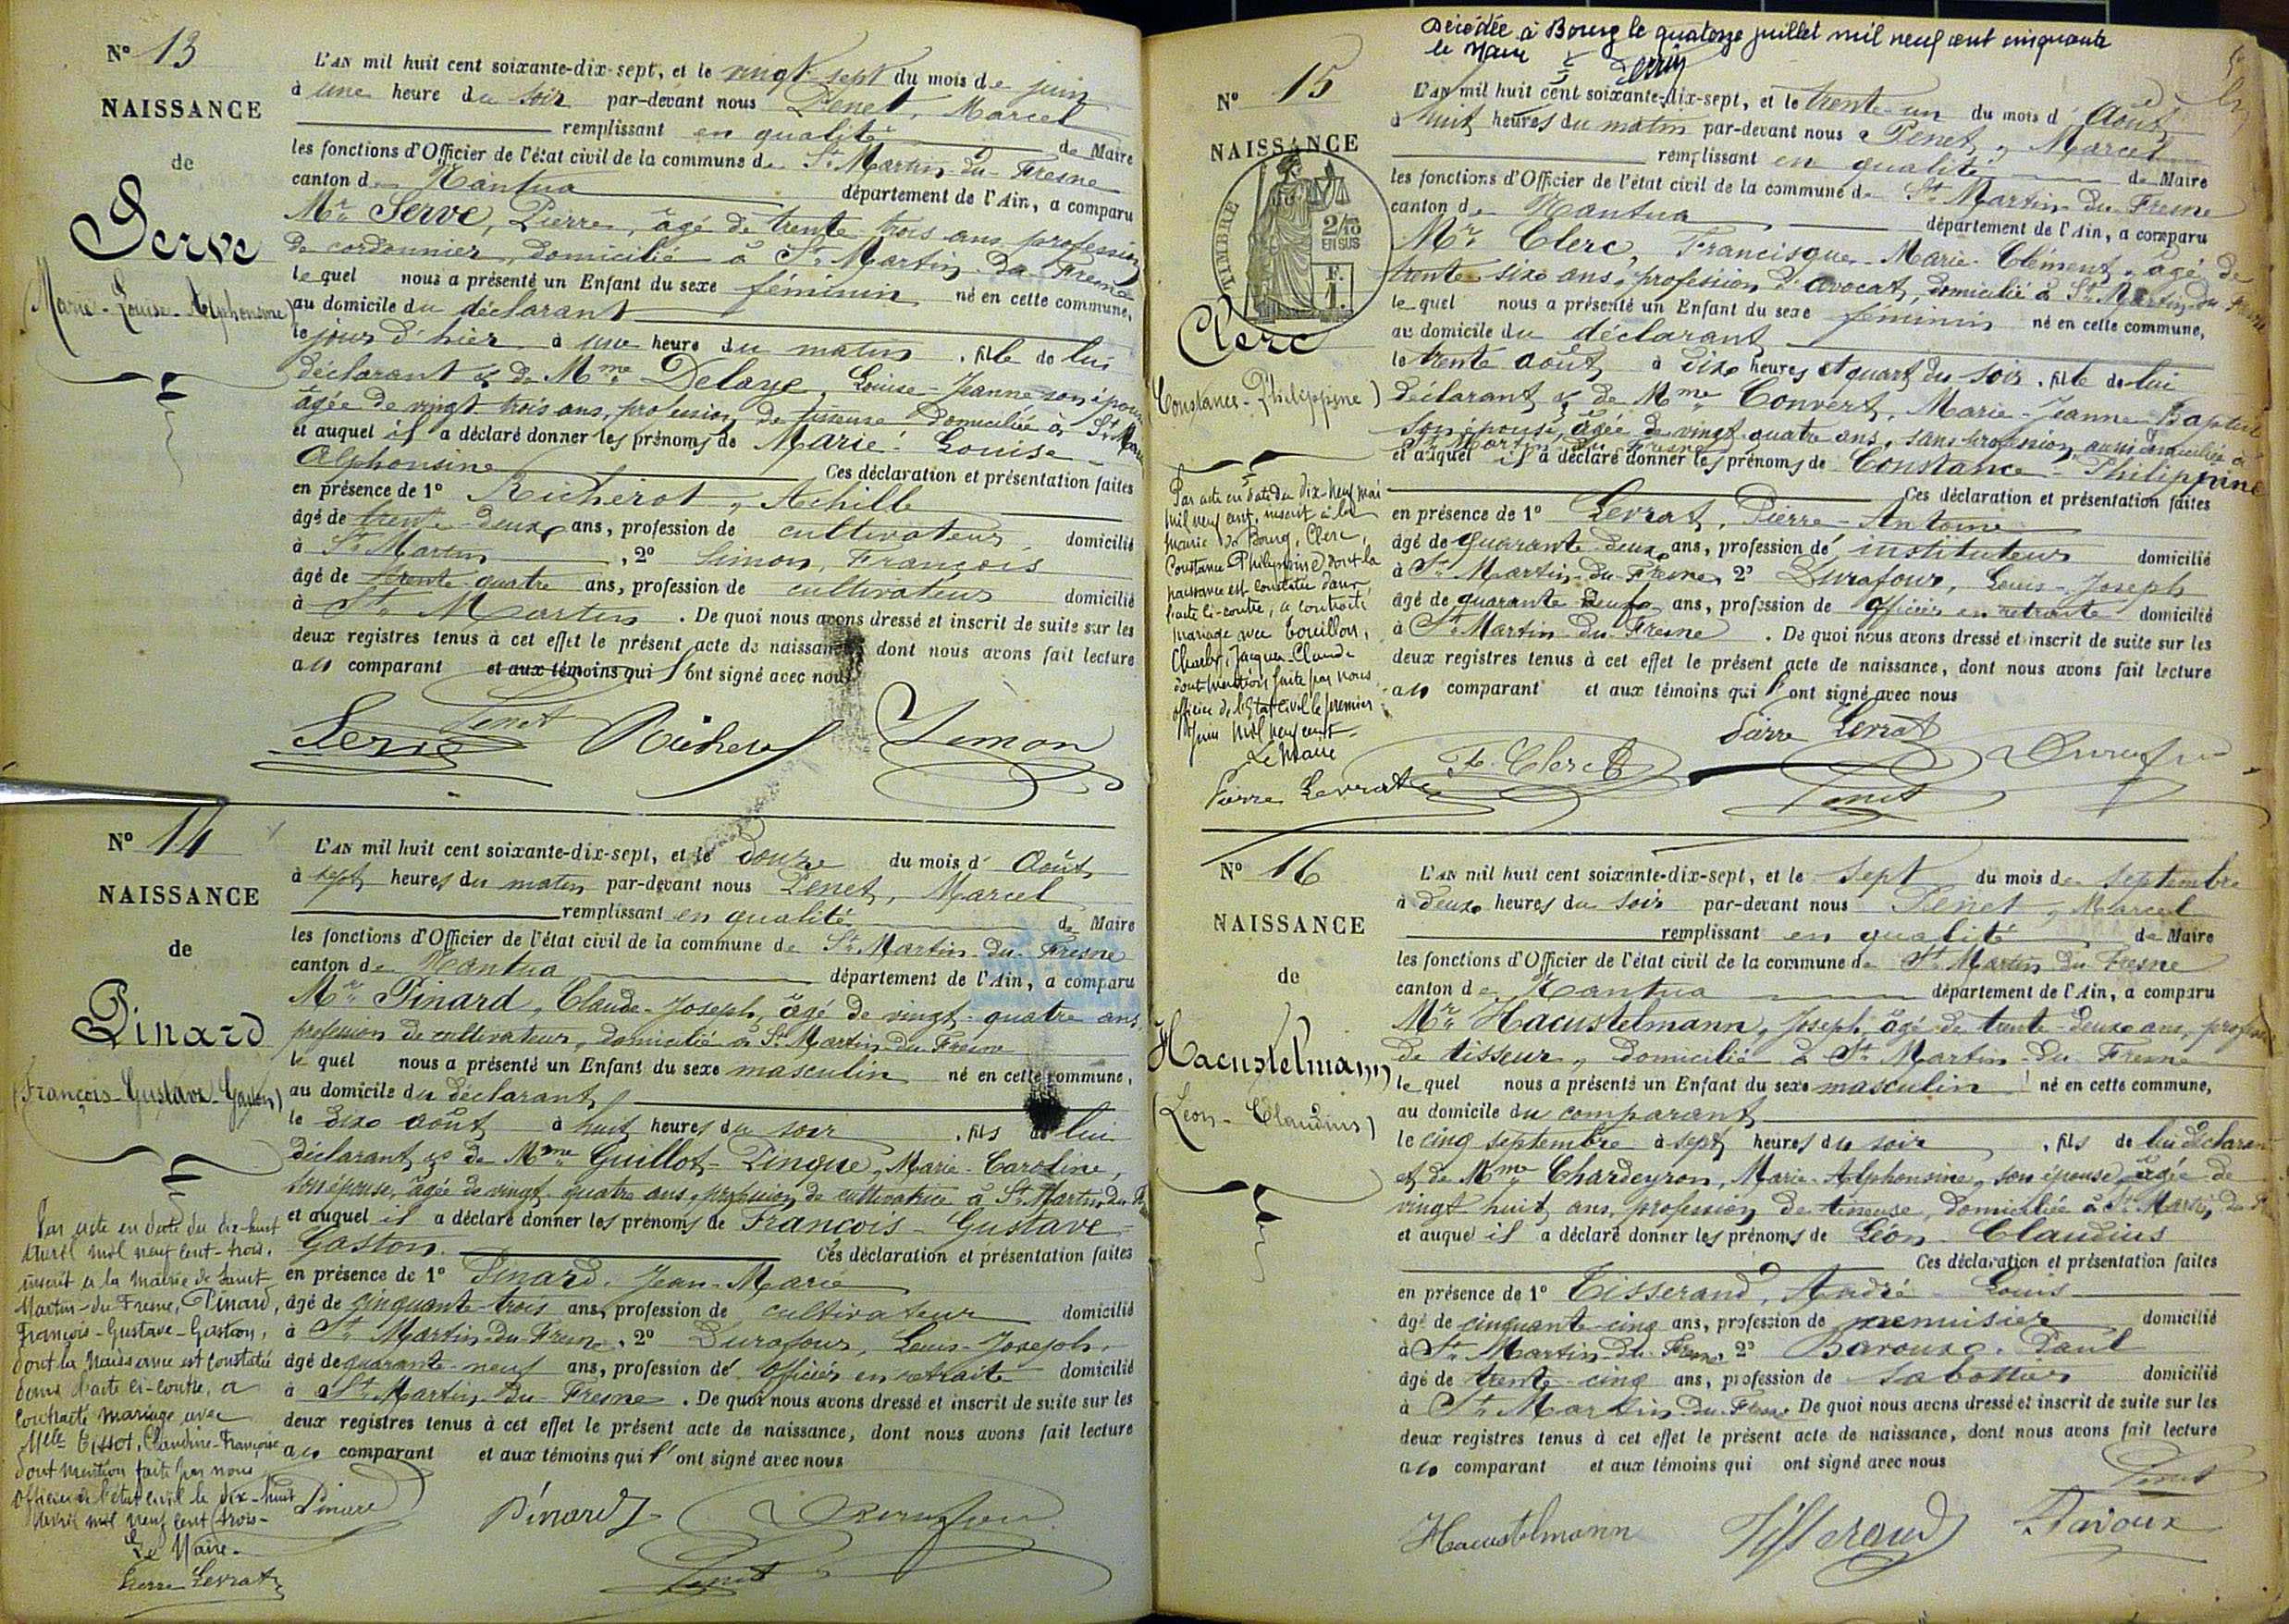 Nº 13
NAISSANCE
de
Serve
(Marie-Louise-Alphonsine)
L'AN mil huit cent soixante-dix-sept, et le vingt-sept du mois de juin
à une heure du soir par-devant nous Penet, Marcel
remplissant en qualité de Maire
les fonctions d'Officier de l'état civil de la commune de St Martin-du-Fresne
canton de Nantua département de l'Ain, a comparu
Mr Serve, Pierre, âgé de trente trois ans, profession
de cordonnier, domicilié à St Martin-du-Fresne
le quel nous a présenté un Enfant du sexe féminin né en cette commune,
au domicile du déclarant
le jour d'hier à une heure du matin, fille de lui
déclarant & de Mme Delaye, Louise-Jeanne son épouse
âgée de vingt-trois ans, profession de tisseuse domiciliée à St Mar
et auquel il a déclaré donner les prénoms de Marie-Louise-
Alphonsine Ces déclaration et présentation faites
en présence de 1º Richerot, Achille
âgé de trente-deux ans, profession de cultivateur domicilié
à St Martin, 2º Simon, François
âgé de trente-quatre ans, profession de cultivateur domicilié
à St Martin. De quoi nous avons dressé et inscrit de suite sur les
deux registres tenus à cet effet le présent acte de naissance dont nous avons fait lecture
au comparant et aux témoins qui l'ont signé avec nous
Penet
Serve Richerot Simon
Nº 14
NAISSANCE
de
Pinard
(François-Gustave-Gaston)
L'AN mil huit cent soixante-dix-sept, et le douze du mois d'Août
à sept heures du matin par-devant nous Penet, Marcel
remplissant en qualité de Maire
les fonctions d'Officier de l'état civil de la commune de St Martin-du-Fresne
canton de Nantua département de l'Ain, a comparu
Mr Pinard, Claude-Joseph, âgé de vingt-quatre ans,
profession de cultivateur, domicilié à St Martin-du-Fresne
le quel nous a présenté un Enfant du sexe masculin né en cette commune,
au domicile du déclarant
le dix août à huit heures du soir, fils de lui
déclarant & de Mme Guillot-Pingue, Marie-Caroline,
son épouse, âgée de vingt-quatre ans, profession de cultivatrice à St Martin-du-F
et auquel il a déclaré donner les prénoms de François-Gustave-
Gaston. Ces déclaration et présentation faites
en présence de 1º Pinard, Jean-Marie
âgé de cinquante-trois ans, profession de cultivateur domicilié
à St Martin-du-Fresne, 2º Durafour, Louis-Joseph,
âgé de quarante-neuf ans, profession de Officier en retraite domicilié
à St Martin-du-Fresne. De quoi nous avons dressé et inscrit de suite sur les
deux registres tenus à cet effet le présent acte de naissance, dont nous avons fait lecture
au comparant et aux témoins qui l'ont signé avec nous
Par acte en date du dix-huit
Avril mil neuf cent-trois,
inscrit à la mairie de Saint-
Martin-du-Fresne, Pinard,
François-Gustave-Gaston,
dont la naissance est constatée
dans l'acte ci-contre, a
contracté mariage avec
Melle Tissot, Claudine-Françoise
dont mention faite par nous
officier de l'état civil le dix-huit
Avril mil neuf cent trois-
Le Maire-
Pierre Levrat
Pinard Pinard
Penet
Décédée à Bourg le quatorze juillet mil neuf cent cinquante
le Maire
Nº 15
NAISSANCE
TIMBRE
2/10
EN SUS
F.
1.
Clerc
(Constance-Philippine)
L'AN mil huit cent soixante-dix-sept, et le trente-un du mois d'Août
à huit heures du matin par-devant nous Penet, Marcel
remplissant en qualité de Maire
les fonctions d'Officier de l'état civil de la commune de St Martin-du-Fresne
canton de Nantua département de l'Ain, a comparu
Mr Clerc, Francisque-Marie-Clément, âgé de
trente-six ans, profession d'avocat, domicilié à St Martin-du-Fresne
le quel nous a présenté un Enfant du sexe féminin né en cette commune,
au domicile du déclarant
le trente août à dix heures et quart du soir, fille de lui
déclarant & de Mme Convert, Marie-Jeanne-Baptist
son épouse, âgée de vingt-quatre ans, sans profession, aussi domiciliée à
St Martin-du-Fresne
et auquel il a déclaré donner les prénoms de Constance-Philippine
Ces déclaration et présentation faites
en présence de 1º Levrat, Pierre-Antoine
âgé de quarante-deux ans, profession de instituteur domicilié
à St Martin-du-Fresne, 2º Durafour, Louis-Joseph
âgé de quarante neuf ans, profession de Officier en retraite domicilié
à St Martin-du-Fresne. De quoi nous avons dressé et inscrit de suite sur les
deux registres tenus à cet effet le présent acte de naissance, dont nous avons fait lecture
au comparant et aux témoins qui l'ont signé avec nous
Par acte en date du dix-neuf mai
mil neuf cent, inscrit à la
mairie de Bourg, Clerc,
Constance Philippine dont la
naissance est constatée dans
l'acte ci-contre, a contracté
mariage avec Touillon,
Charles, Jacques-Claude
dont mention faite par nous
officier de l'Etat Civil le premier
Juin mil neuf cent-
Le Maire
Pierre Levrat
F. Clerc Pierre Levrat
Penet
Nº 16
NAISSANCE
de
Hacustelmann
(Léon-Claudius)
L'AN mil huit cent soixante-dix-sept, et le sept du mois de septembre
à deux heures du soir par-devant nous Penet, Marcel
remplissant en qualité de Maire
les fonctions d'Officier de l'état civil de la commune de St Martin-du-Fresne
canton de Nantua département de l'Ain, a comparu
Mr Hacustelmann, Joseph, âgé de trente-deux ans, profession
de tisseur, domicilié à St Martin-du-Fresne
le quel nous a présenté un Enfant du sexe masculin né en cette commune,
au domicile du comparant
le cinq septembre à sept heures du soir, fils de lui déclarant
et de Mme Chardeyron, Marie-Alphonsine, son épouse, âgée de
vingt huit ans, profession de tisseuse, domiciliée à St Martin-du-F
et auquel il a déclaré donner les prénoms de Léon-Claudius
Ces déclaration et présentation faites
en présence de 1º Tisserand, André-Louis
âgé de cinquante-cinq ans, profession de menuisier domicilié
à St Martin-du-Fresne 2º Baroux, Paul
âgé de trente-cinq ans, profession de sabottier domicilié
à St Martin-du-Fresne. De quoi nous avons dressé et inscrit de suite sur les
deux registres tenus à cet effet le présent acte de naissance, dont nous avons fait lecture
au comparant et aux témoins qui ont signé avec nous
Penet
Hacustelmann Tisserand Baroux